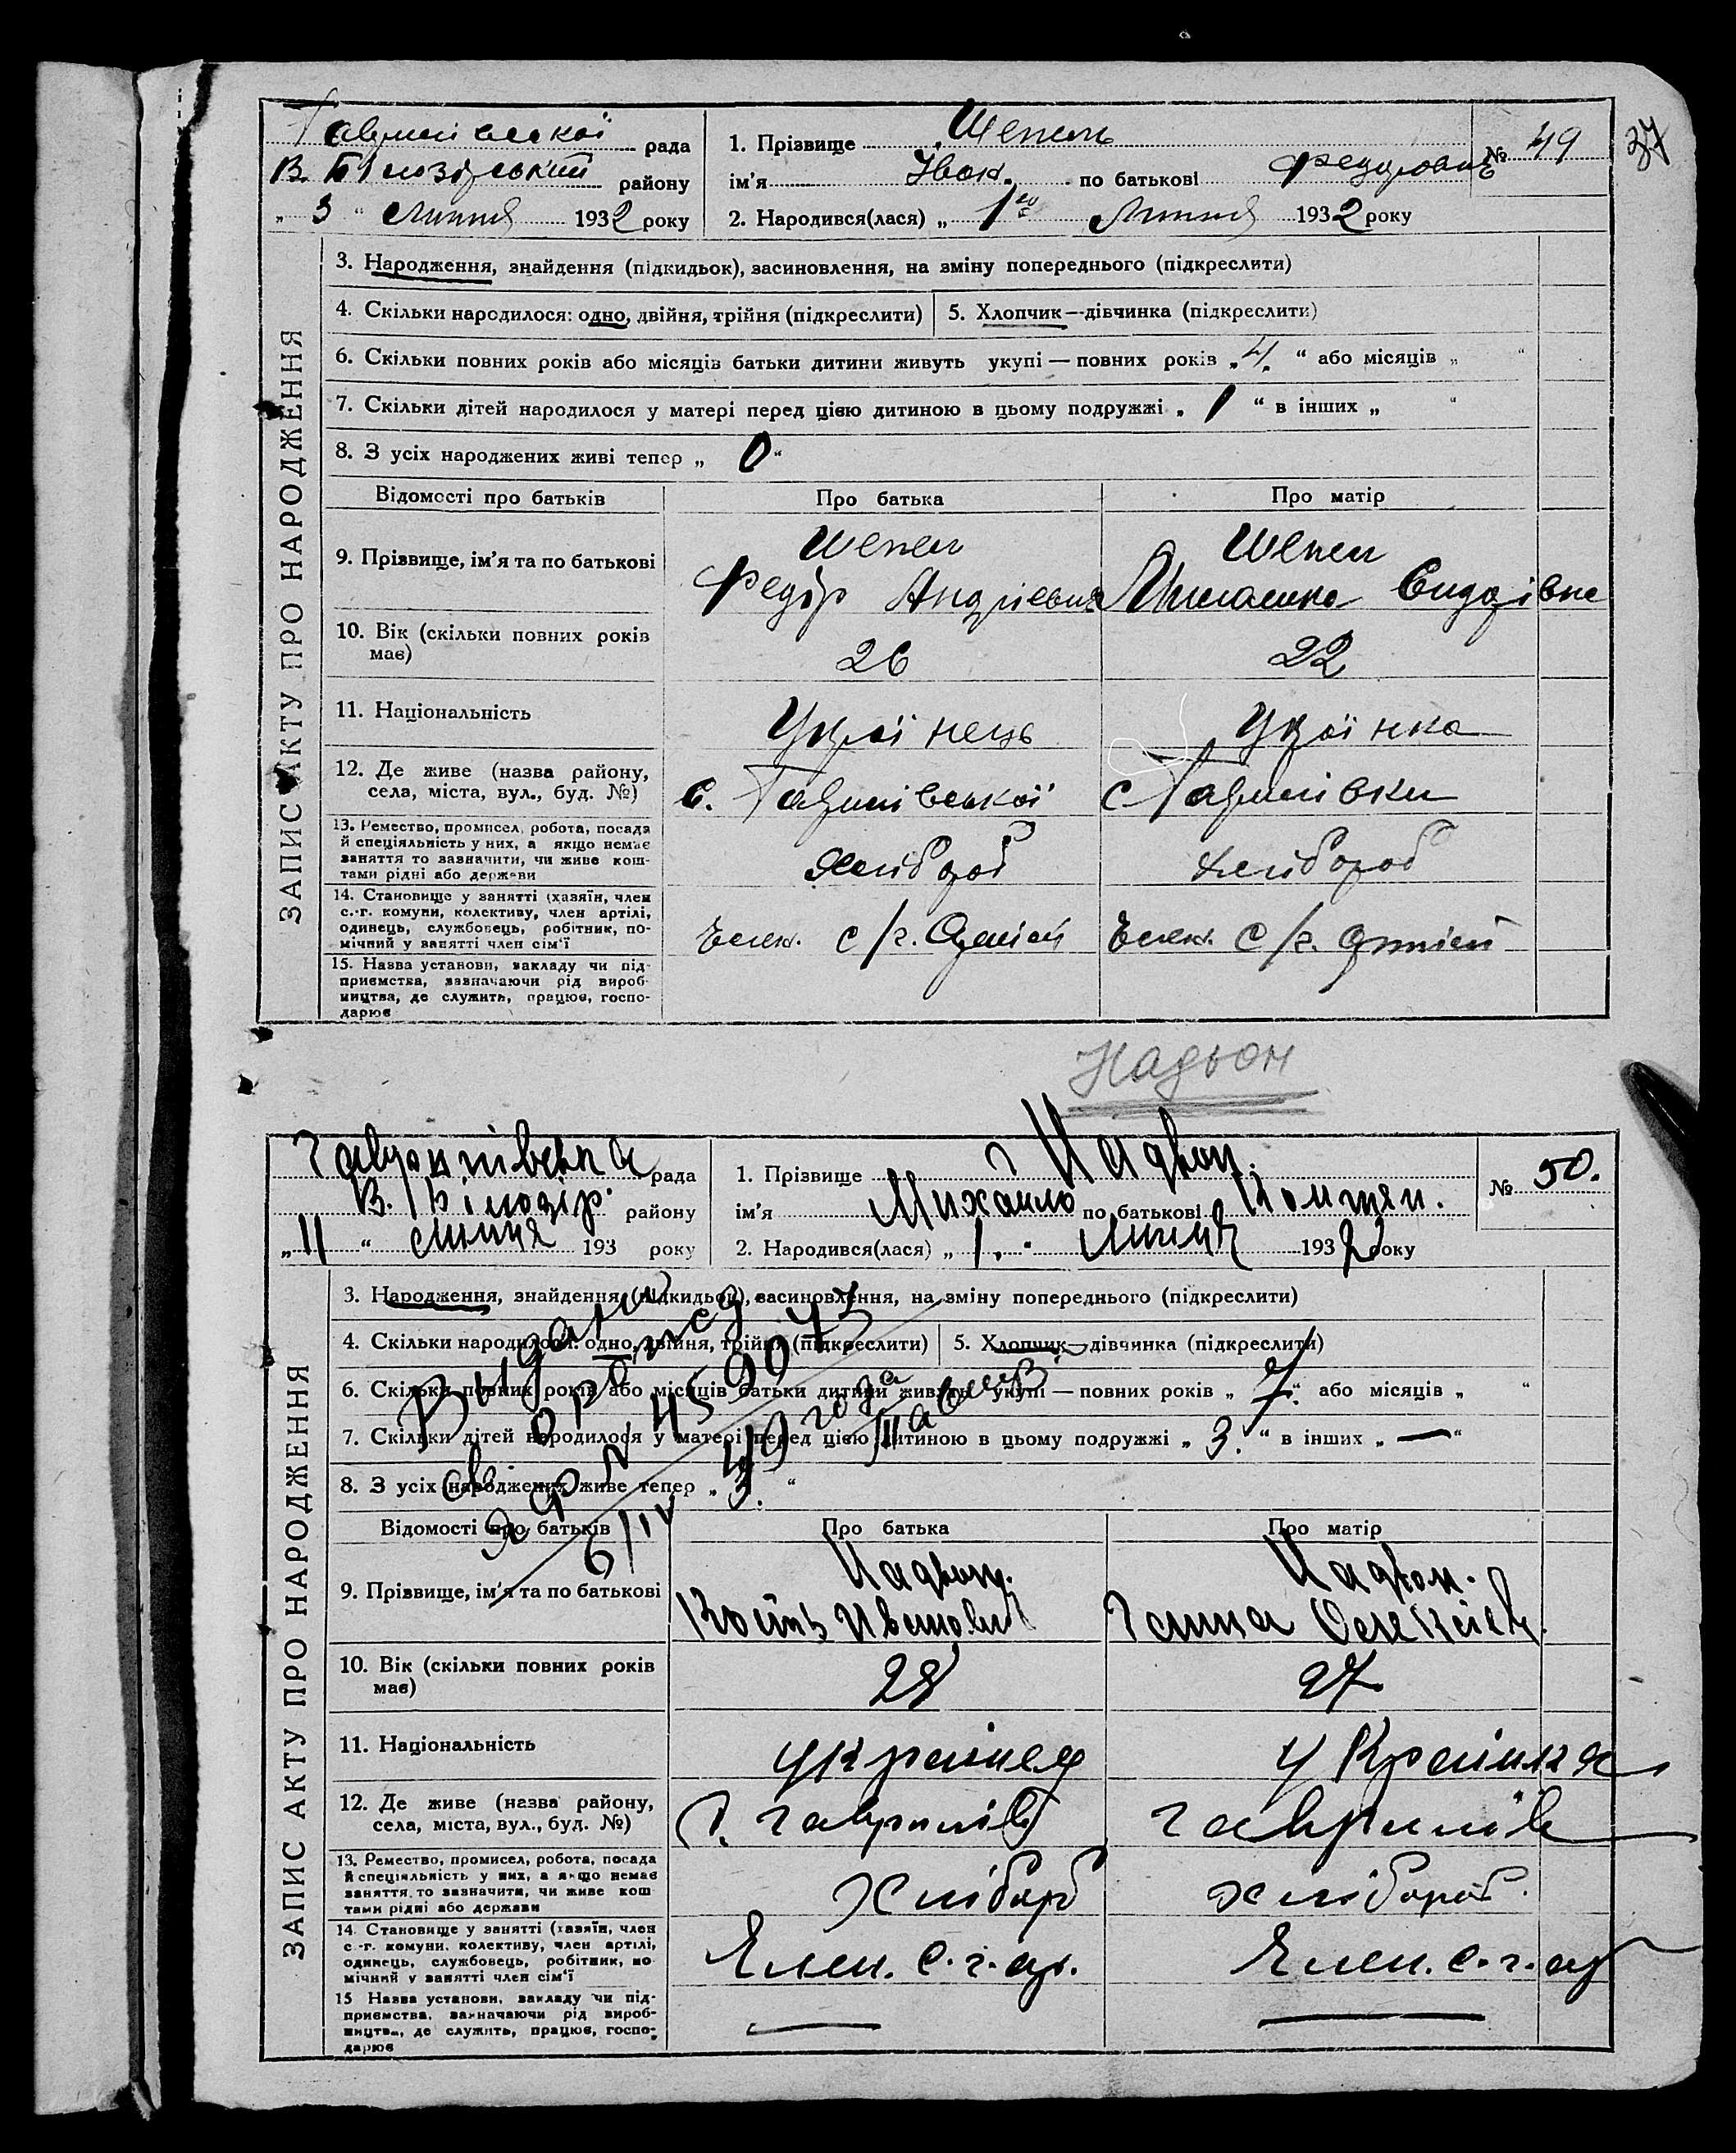 37
Гаврилівської рада
В. Білозірський району
„ 3 “ Липня 1932 року
1. Прізвище Шепель
ім'я Іван по батькові Федорович
№ 49
2. Народився(лася) „ 1го Липня 1932 року
ЗАПИС АКТУ ПРО НАРОДЖЕННЯ
3. Народження, знайдення (підкидьок), засиновлення, на зміну попереднього (підкреслити)
4. Скільки народилося: одно, двійня, трійня (підкреслити)
5. Хлопчик—дівчинка (підкреслити)
6. Скільки повних років або місяців батьки дитини живуть укупі — повних років „ 4. “ або місяців „ “
7. Скільки дітей народилося у матері перед цією дитиною в цьому подружжі „ 1 “ в інших „ “
8. З усіх народжених живі тепер „ 0 “
Відомості про батьків Про батька Про матір
9. Прізвище, ім'я та по батькові
Шепель Федір Андрієвич
Шепель
10. Вік (скільки повних років має)
26 22
11. Національність
Українець Українка
12. Де живе (назва району, села, міста, вул., буд. №)
с. Гаврилівської с. Гаврилівки
13. Ремество, промисел, робота, посада
й спеціяльність у них, а якщо немає
заняття то зазначити, чи живе кош-
тами рідні або держави
Хлібороб Хлібороб
14. Становище у занятті (хазяїн, член
с.-г. комуни, колективу, член артілі,
одинець, службовець, робітник, по-
мічний у занятті член сім'ї
Член. с/г. Артілі Член. с/г. артілі
15. Назва установи, закладу чи під-
приємства, зазначаючи рід вироб-
ництва, де служить, працює, госпо-
дарює
Надьон
Гаврилівська рада
В. Білозір. району
„ 11 “ липня 193 року
1. Прізвище Надьон.
ім'я Михайло по батькові
№ 50.
2. Народився(лася) „ 1. “ Липня 1932 року
ЗАПИС АКТУ ПРО НАРОДЖЕННЯ
3. Народження, знайдення (підкидьок), засиновлення, на зміну попереднього (підкреслити)
4. Скільки народилося: одно, двійня, трійня (підкреслити)
5. Хлопчик—дівчинка (підкреслити)
6. Скільки повних років або місяців батьки дитини живуть укупі — повних років „ 7 “ або місяців „ “
7. Скільки дітей народилося у матері перед цією дитиною в цьому подружжі „ 3. “ в інших „ — “
8. З усіх народжених живе тепер „ 3. “
Відомості про батьків Про батька Про матір
9. Прізвище, ім'я та по батькові
Надьон. Иванович
Надьон. Ганна
10. Вік (скільки повних років має)
28 27
11. Національність
українец Українка
12. Де живе (назва району, села, міста, вул., буд. №)
с. Гаврилів Гаврилів
13. Ремество, промисел, робота, посада
й спеціяльність у них, а якщо немає
заняття, то зазначити, чи живе кош-
тами рідні або держави
Хлібороб хлібороб.
14. Становище у занятті (хазяїн, член
с.-г. комуни, колективу, член артілі,
одинець, службовець, робітник, по-
мічний у занятті член сім'ї
Член. с.-г. ар. Член. с.-г. ар
15. Назва установи, закладу чи під-
приємства, зазначаючи рід вироб-
ництва, де служить, працює, госпо-
дарює